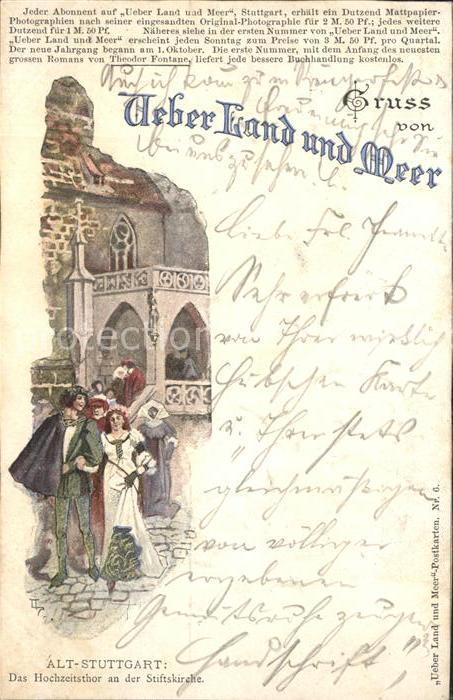 Jeder Abonnent auf „Ueber Land und Meer“, Stuttgart, erhält ein Dutzend Mattpapier-
Photographien nach seiner eingesandten Original-Photographie für 2 M. 50 Pf.; jedes weitere
Dutzend für 1 M. 50 Pf. Näheres siehe in der ersten Nummer von „Ueber Land und Meer“.
„Ueber Land und Meer“ erscheint jeden Sonntag zum Preise von 3 M. 50 Pf. pro Quartal.
Der neue Jahrgang begann am 1. Oktober. Die erste Nummer, mit dem Anfang des neuesten
grossen Romans von Theodor Fontane, liefert jede bessere Buchhandlung kostenlos.
Gruss
von
Ueber Land und Meer
bei uns zu sehen
Liebe Frl.
Sehr erfreut
von Ihrer wirklich
hübschen Karte
u. Ihrer stets
gleichmäßigen
von völliger
ergebenen
Gemütsruhe zeugen
Handschrift
ALT-STUTTGART:
Das Hochzeitsthor an der Stiftskirche.
„Ueber Land und Meer“-Postkarten. Nr. 6.